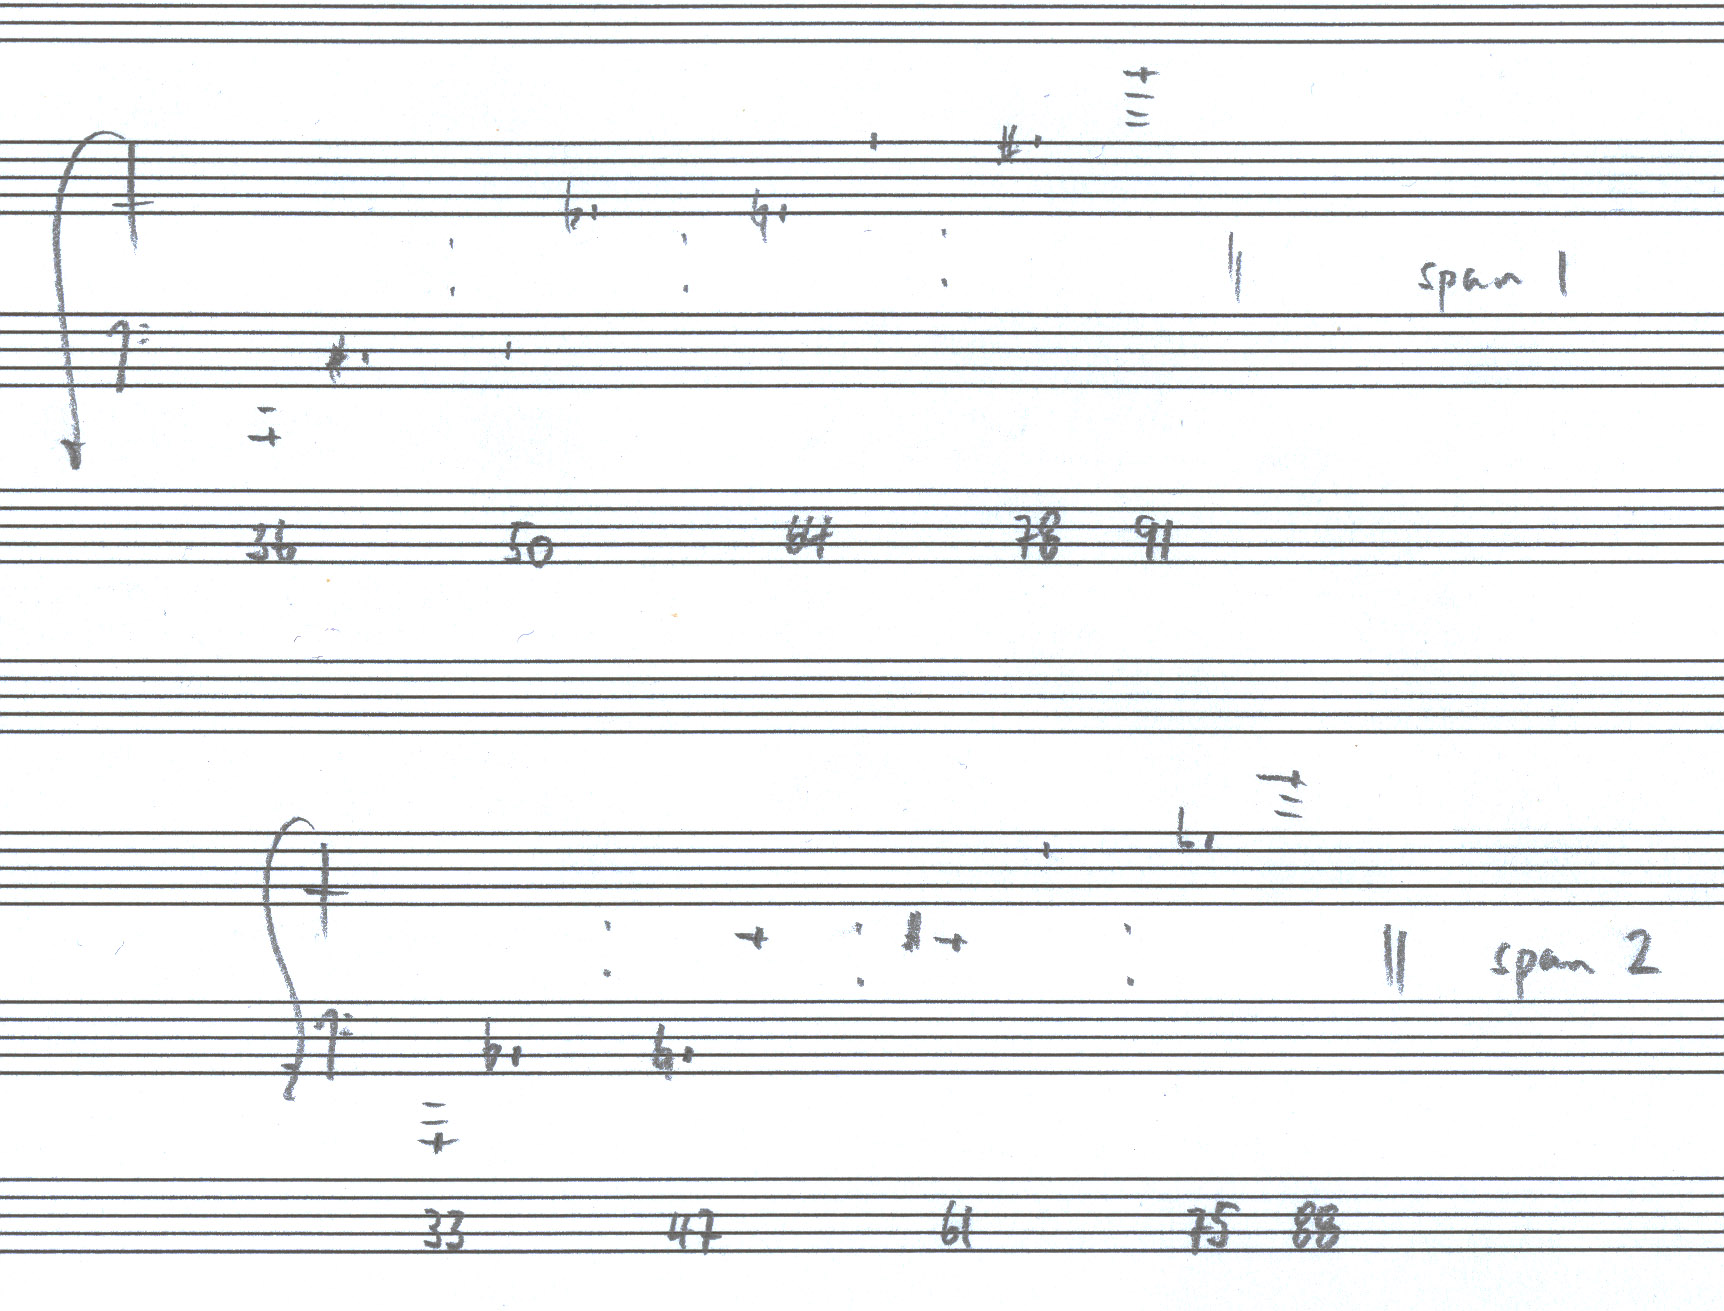 span 1
36 50 64 78 91
span 2
33 47 61 75 88